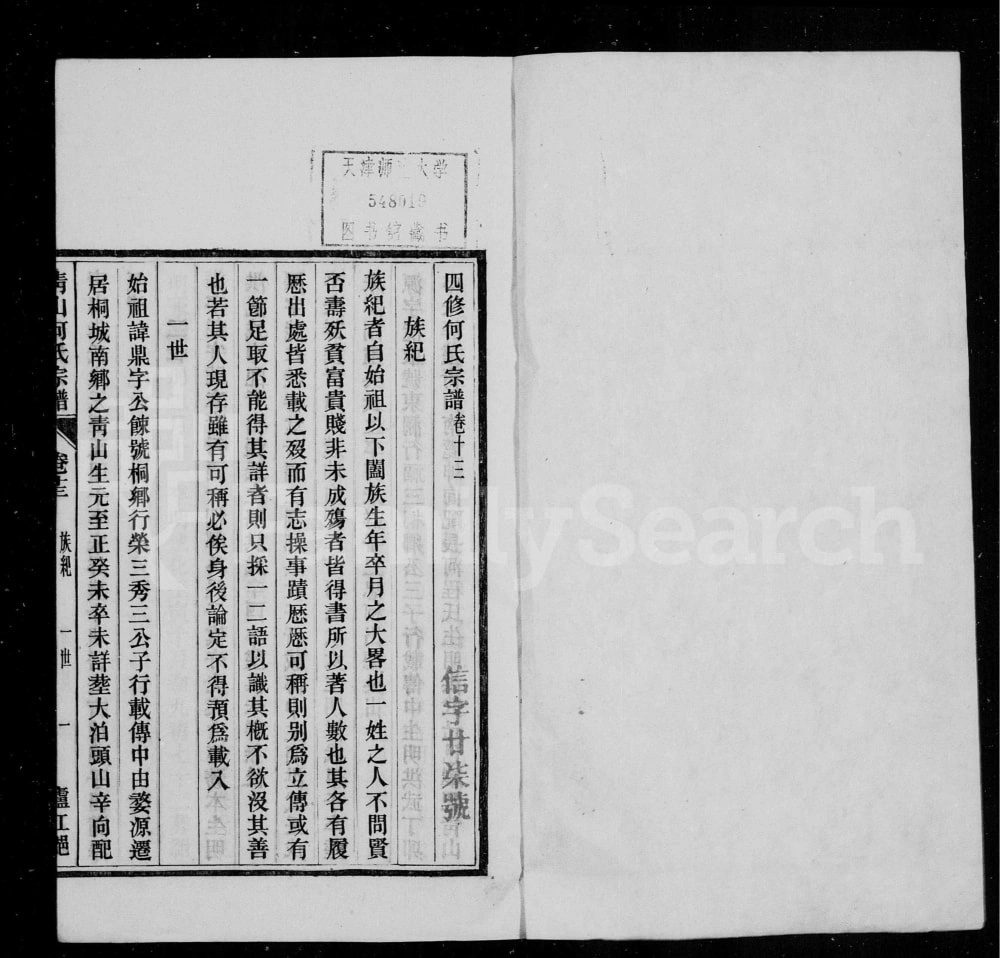 天津师 大学
548019
图书馆藏书
四修何氏宗譜卷十三
信字廿柒號
族紀
族紀者自始祖以下闔族生年卒月之大畧也一姓之人不問賢
否壽殀貧富貴賤非未成殤者皆得書所以著人數也其各有履
歷出處皆悉載之歿而有志操事蹟歷歷可稱則别為立傳或有
一節足取不能得其詳者則只採一二語以識其槪不欲沒其善
也若其人現存雖有可稱必俟身後論定不得預爲載入
一世
始祖諱鼎字公餗號桐鄉行榮三秀三公子行載傳中由婺源遷
居桐城南鄉之靑山生元至正癸未卒未詳塟大泊頭山辛向配
靑山何氏宗譜
卷十三
族紀
一世
一
廬江
FamilySearch